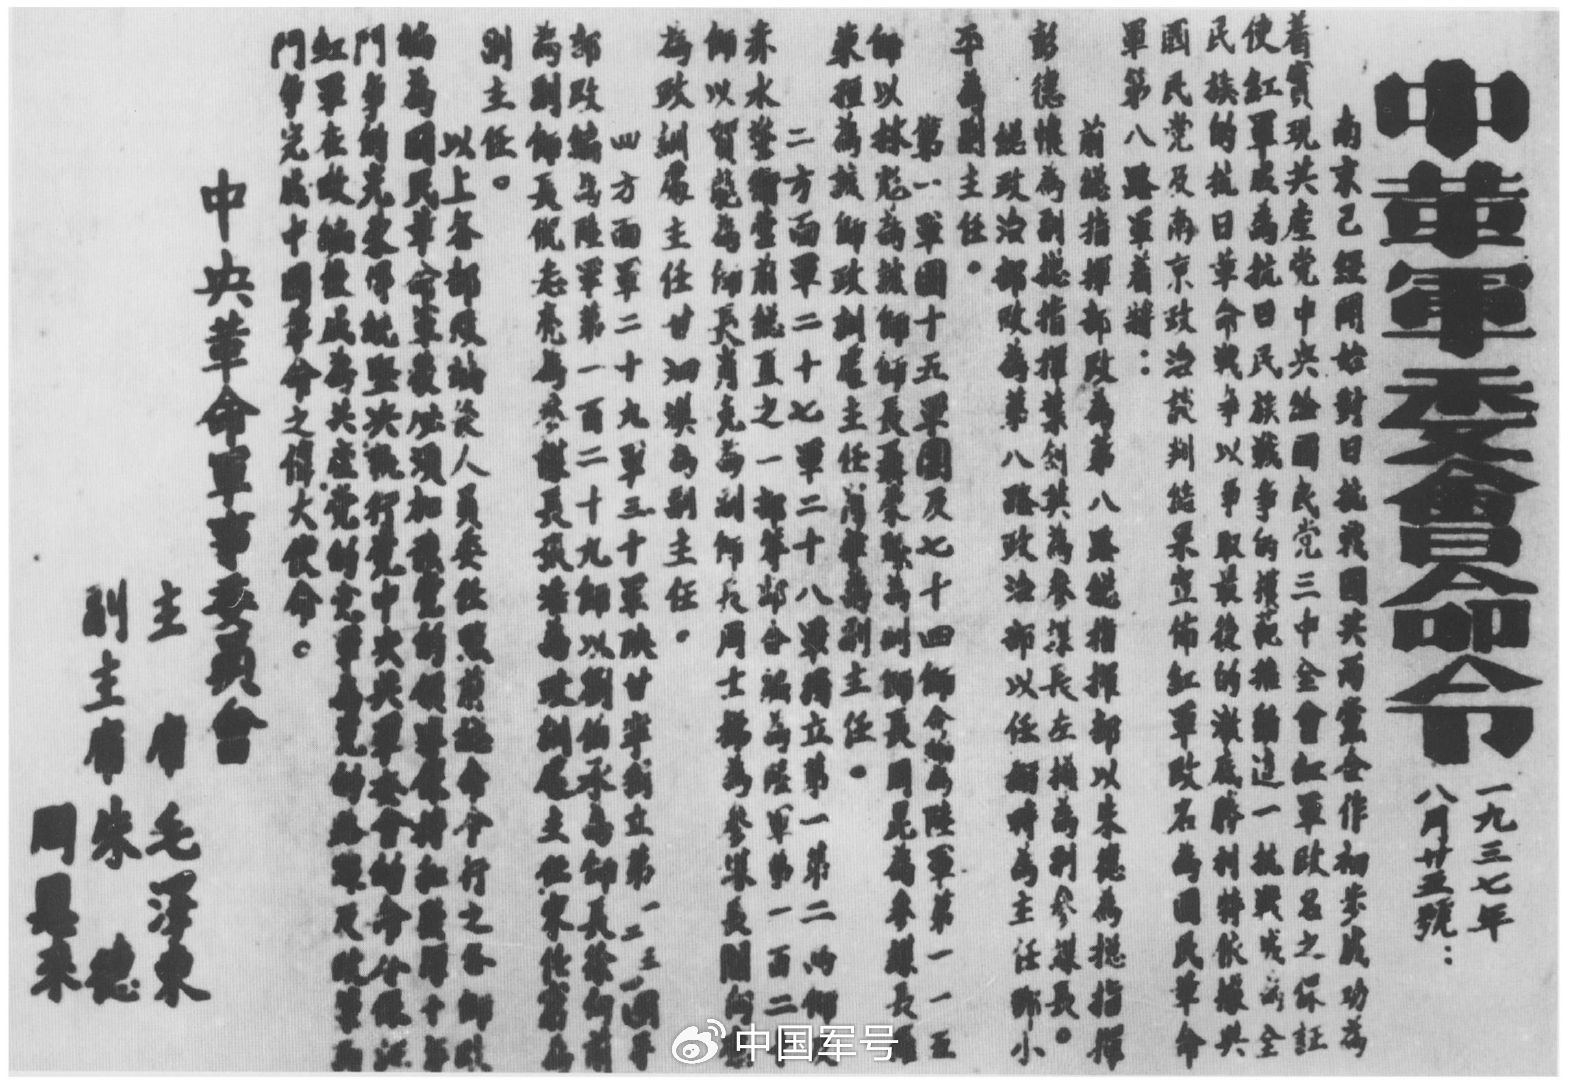 中革軍委會命令
一九三七年
八月廿五號：
南京已經開始對日抗戰國共兩黨合作初步成功為
着實現共產党中央給國民党三中全會紅軍改名之保証
使紅軍成為抗日民族戰爭的模範推動這一抗戰成為全
民族的抗日革命戰爭以爭取最後的澈底勝利特依據與
國民党及南京政治談判結果宣佈紅軍改名為國民革命
軍第八路軍着將：
前總指揮部改為第八路總指揮部以朱德為總指揮
彭德懷為副總指揮葉劍英為參謀長左權為副參謀長。
總政治部改為第八路政治部以任弼時為主任鄧小
平為副主任。
第一軍團十五軍團及七十四師合編為陸軍第一一五
師以林彪為該師師長聶榮臻為副師長周昆為參謀長羅
榮桓為該師政訓處主任蕭華為副主任。
二方面軍二十七軍二十八軍獨立第一第二兩師及
赤水警衛營前總直之一部等部合編為陸軍第一百二十
師以賀龍為師長肖克為副師長周士弟為參謀長關向應
為政訓處主任甘泗淇為副主任。
四方面軍二十九軍三十軍陝甘寧獨立第一二三四團等
部改編為陸軍第一百二十九師以劉伯承為師長徐向前
為副師長倪志亮為參謀長張浩為政訓處主任宋任窮為
副主任。
以上各部改編後人員委任照前總命令行之各師改
編為國民革命軍後必須加強党的領導保持和發揚十年
鬥爭的光榮傳統堅決執行党中央與軍委會的命令保証
紅軍在改編後成為共產党的党軍為党的路線及政策而
鬥爭完成中國革命之偉大使命。
中央革命軍事委員會
主席毛澤東
副主席朱德
周恩來
中国军号